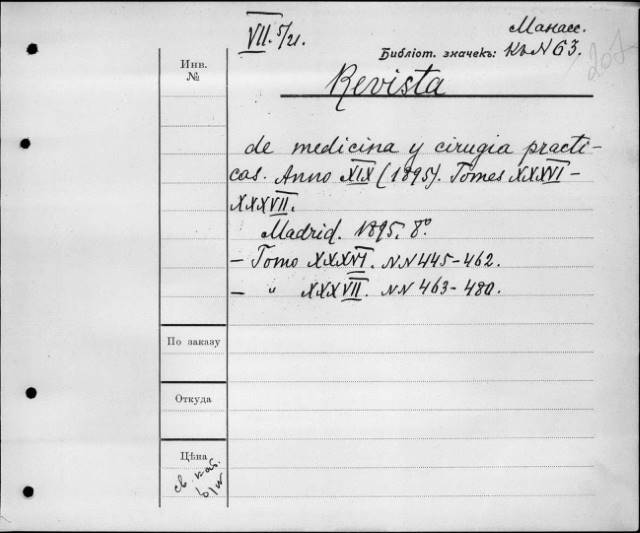 VII. 5/21.
Манасс.
Библіот. значекъ: КъN 63.
Инв.
№
Revista
de medicina y cirugia practi-
cas. Anno XIX (1895). Tomes XXXVI-
XXXVII.
Madrid. 1895. 8º.
- Tomo XXXVI. NN 445-462.
- " XXXVII. NN 463-480.
По заказу
Откуда
Цѣна